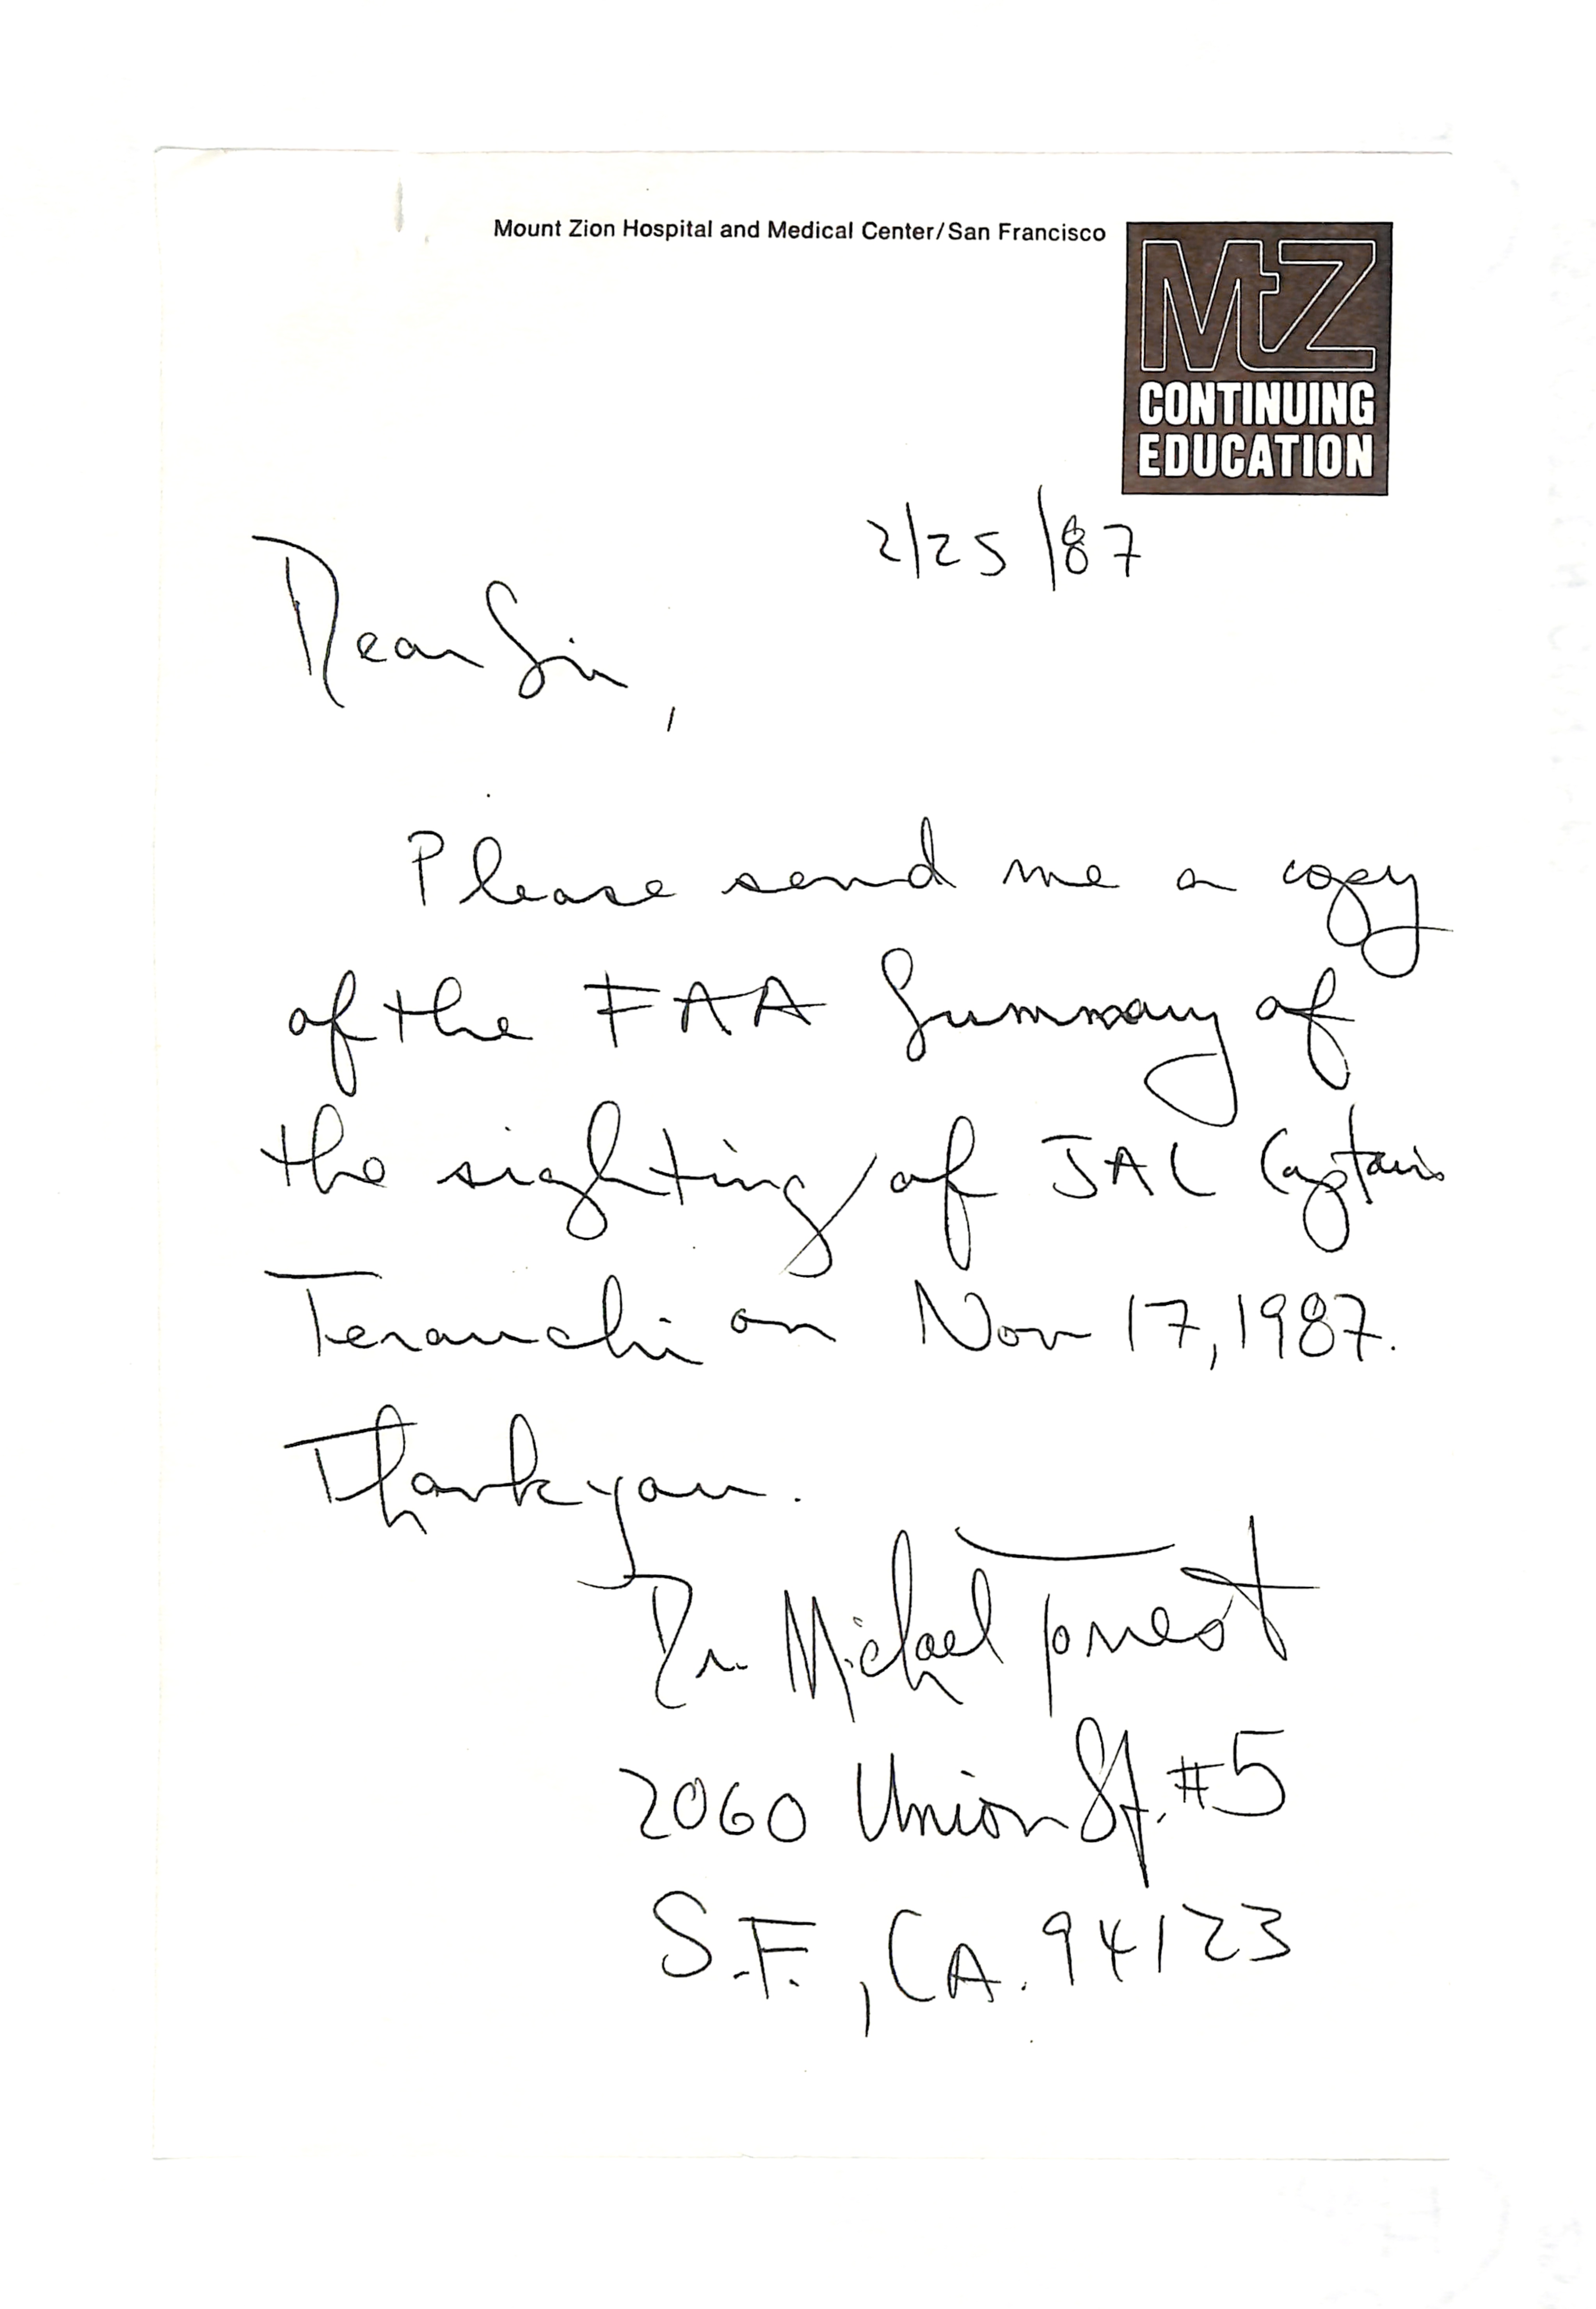 Mount Zion Hospital and Medical Center/San Francisco
MtZ
CONTINUING
EDUCATION
2/25/87
Dear Sir,
Please send me a copy
of the FAA Summary of
the sighting of JAL Captain
Terauchi on Nov 17, 1987.
Thank you.
Dr. Michael Forrest
2060 Union St. #5
S.F., CA. 94123